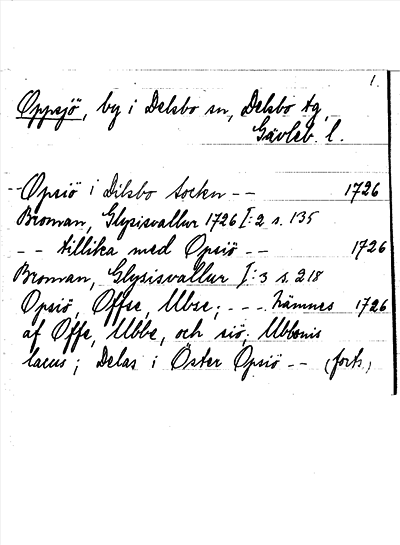 1.
Oppsjö, by i Delsbo sn, Delsbo tg,
Gävleb. l.
-- Opsiö i Dilsbo socken -- 1726
Broman, Glysisvallur 1726 I:2 s. 135
-- tillika med Opsiö -- 1726
Broman, Glysisvallur I:3 s. 218
Opsiö, Offse, Ubse; --- nämnes 1726
af Offe, Ubbe, och siö; Ubbonis
lacus; Delas i Öster Opsiö -- (forts.)